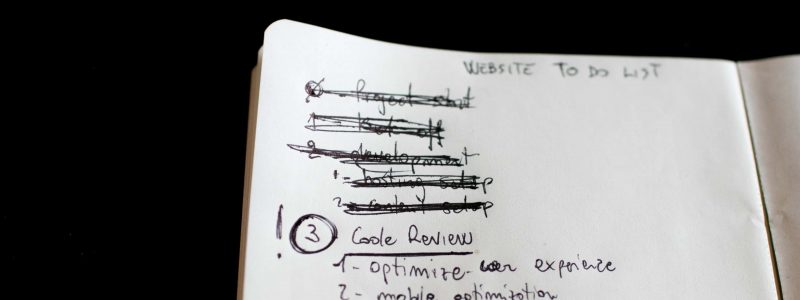 WEBSITE TO DO LIST
0 - Project start
1 - Kick off
2 - development
1 - hosting setup
2 - setup
! 3 Code Review
1 - optimize user experience
2 - mobile optimization